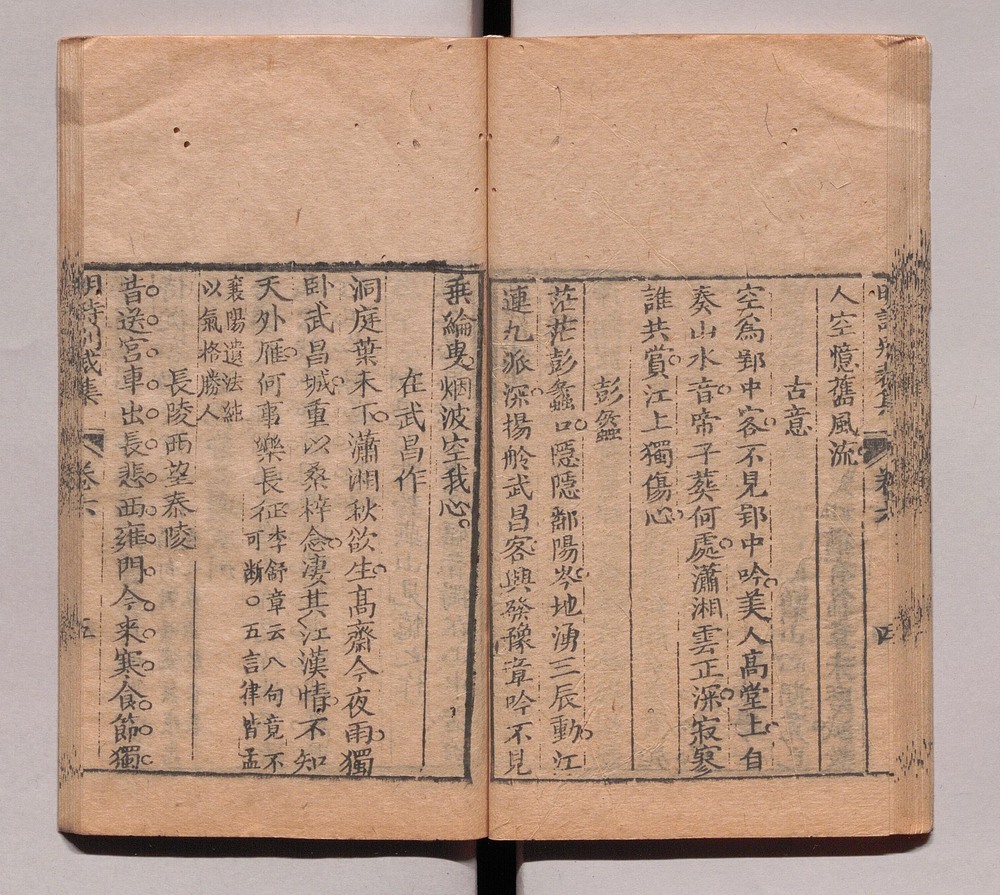 明詩別裁集
卷六
四
人空憶舊風流
古意
空爲郢中客不見郢中吟美人高堂上自
奏山水音帝子葬何處瀟湘雲正深寂寥
誰共賞江上獨傷心
彭蠡
茫茫彭蠡口隱隱鄱陽岑地湧三辰動江
連九派深揚舲武昌客興發豫章吟不見
垂綸叟烟波空我心
在武昌作
洞庭葉未下瀟湘秋欲生高齋今夜雨獨
卧武昌城重以桑梓念淒其江漢情不知
天外雁何事樂長征李舒章云八句竟不
可断〇五言律皆孟
襄陽遺法純
以氣格勝人
長陵西望泰陵
昔送宮車出長悲西雍門今来寒食節獨
明詩別裁集
卷六
五